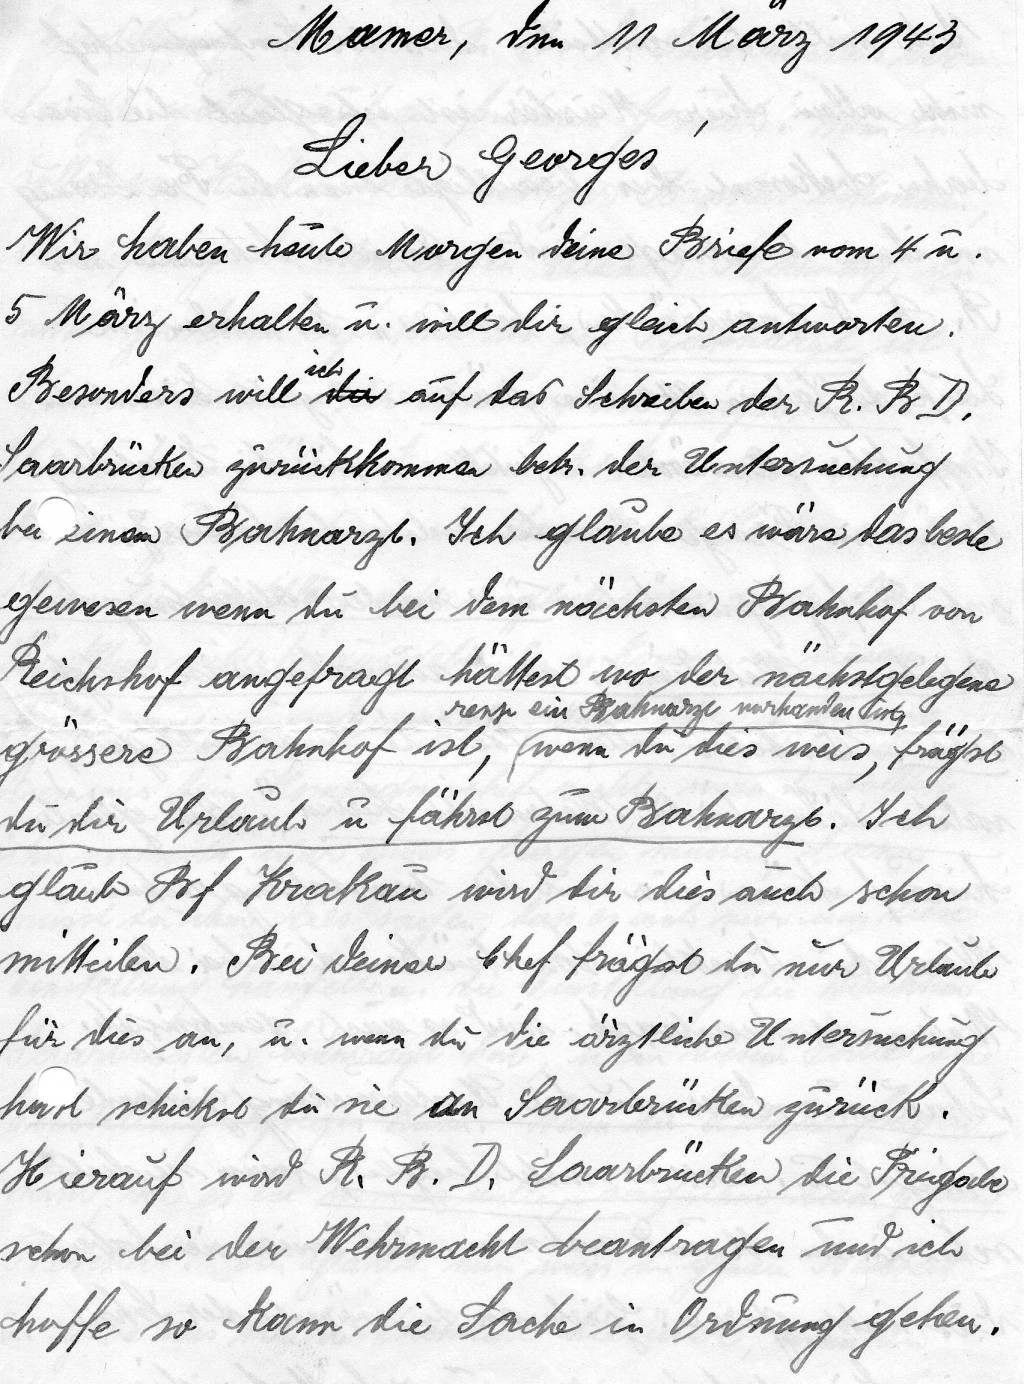 Mamer, den 11 März 1943
Lieber Georges'
Wir haben heute Morgen deine Briefe vom 4 u.
5 März erhalten u. will dir gleich antworten.
Besonders will ich auf das Schreiben der R. B D.
Saarbrücken zurückkommen betr. der Untersuchung
bei einem Bahnarzt. Ich glaube es wäre das beste
gewesen wenn du bei dem nächsten Bahnhof von
Reichshof angefragt hättest wo der nächstgelegene
resp. ein Bahnarzt vorhanden ist,
grössere Bahnhof ist, (wenn du dies weis, frägst
du dir Urlaub u fährst zum Bahnarzt. Ich
glaube Bf Krakau wird dir dies auch schon
mitteilen. Bei deiner Chef frägst du nur Urlaub
für dies an, u. wenn du die ärztliche Untersuchung
hast schickst du sie an Saarbrücken zurück.
Hierauf wird R. B. D. Saarbrücken die Frigabe
schon bei der Wehrmacht beantragen und ich
hoffe so kann die Sache in Ordnung gehen.